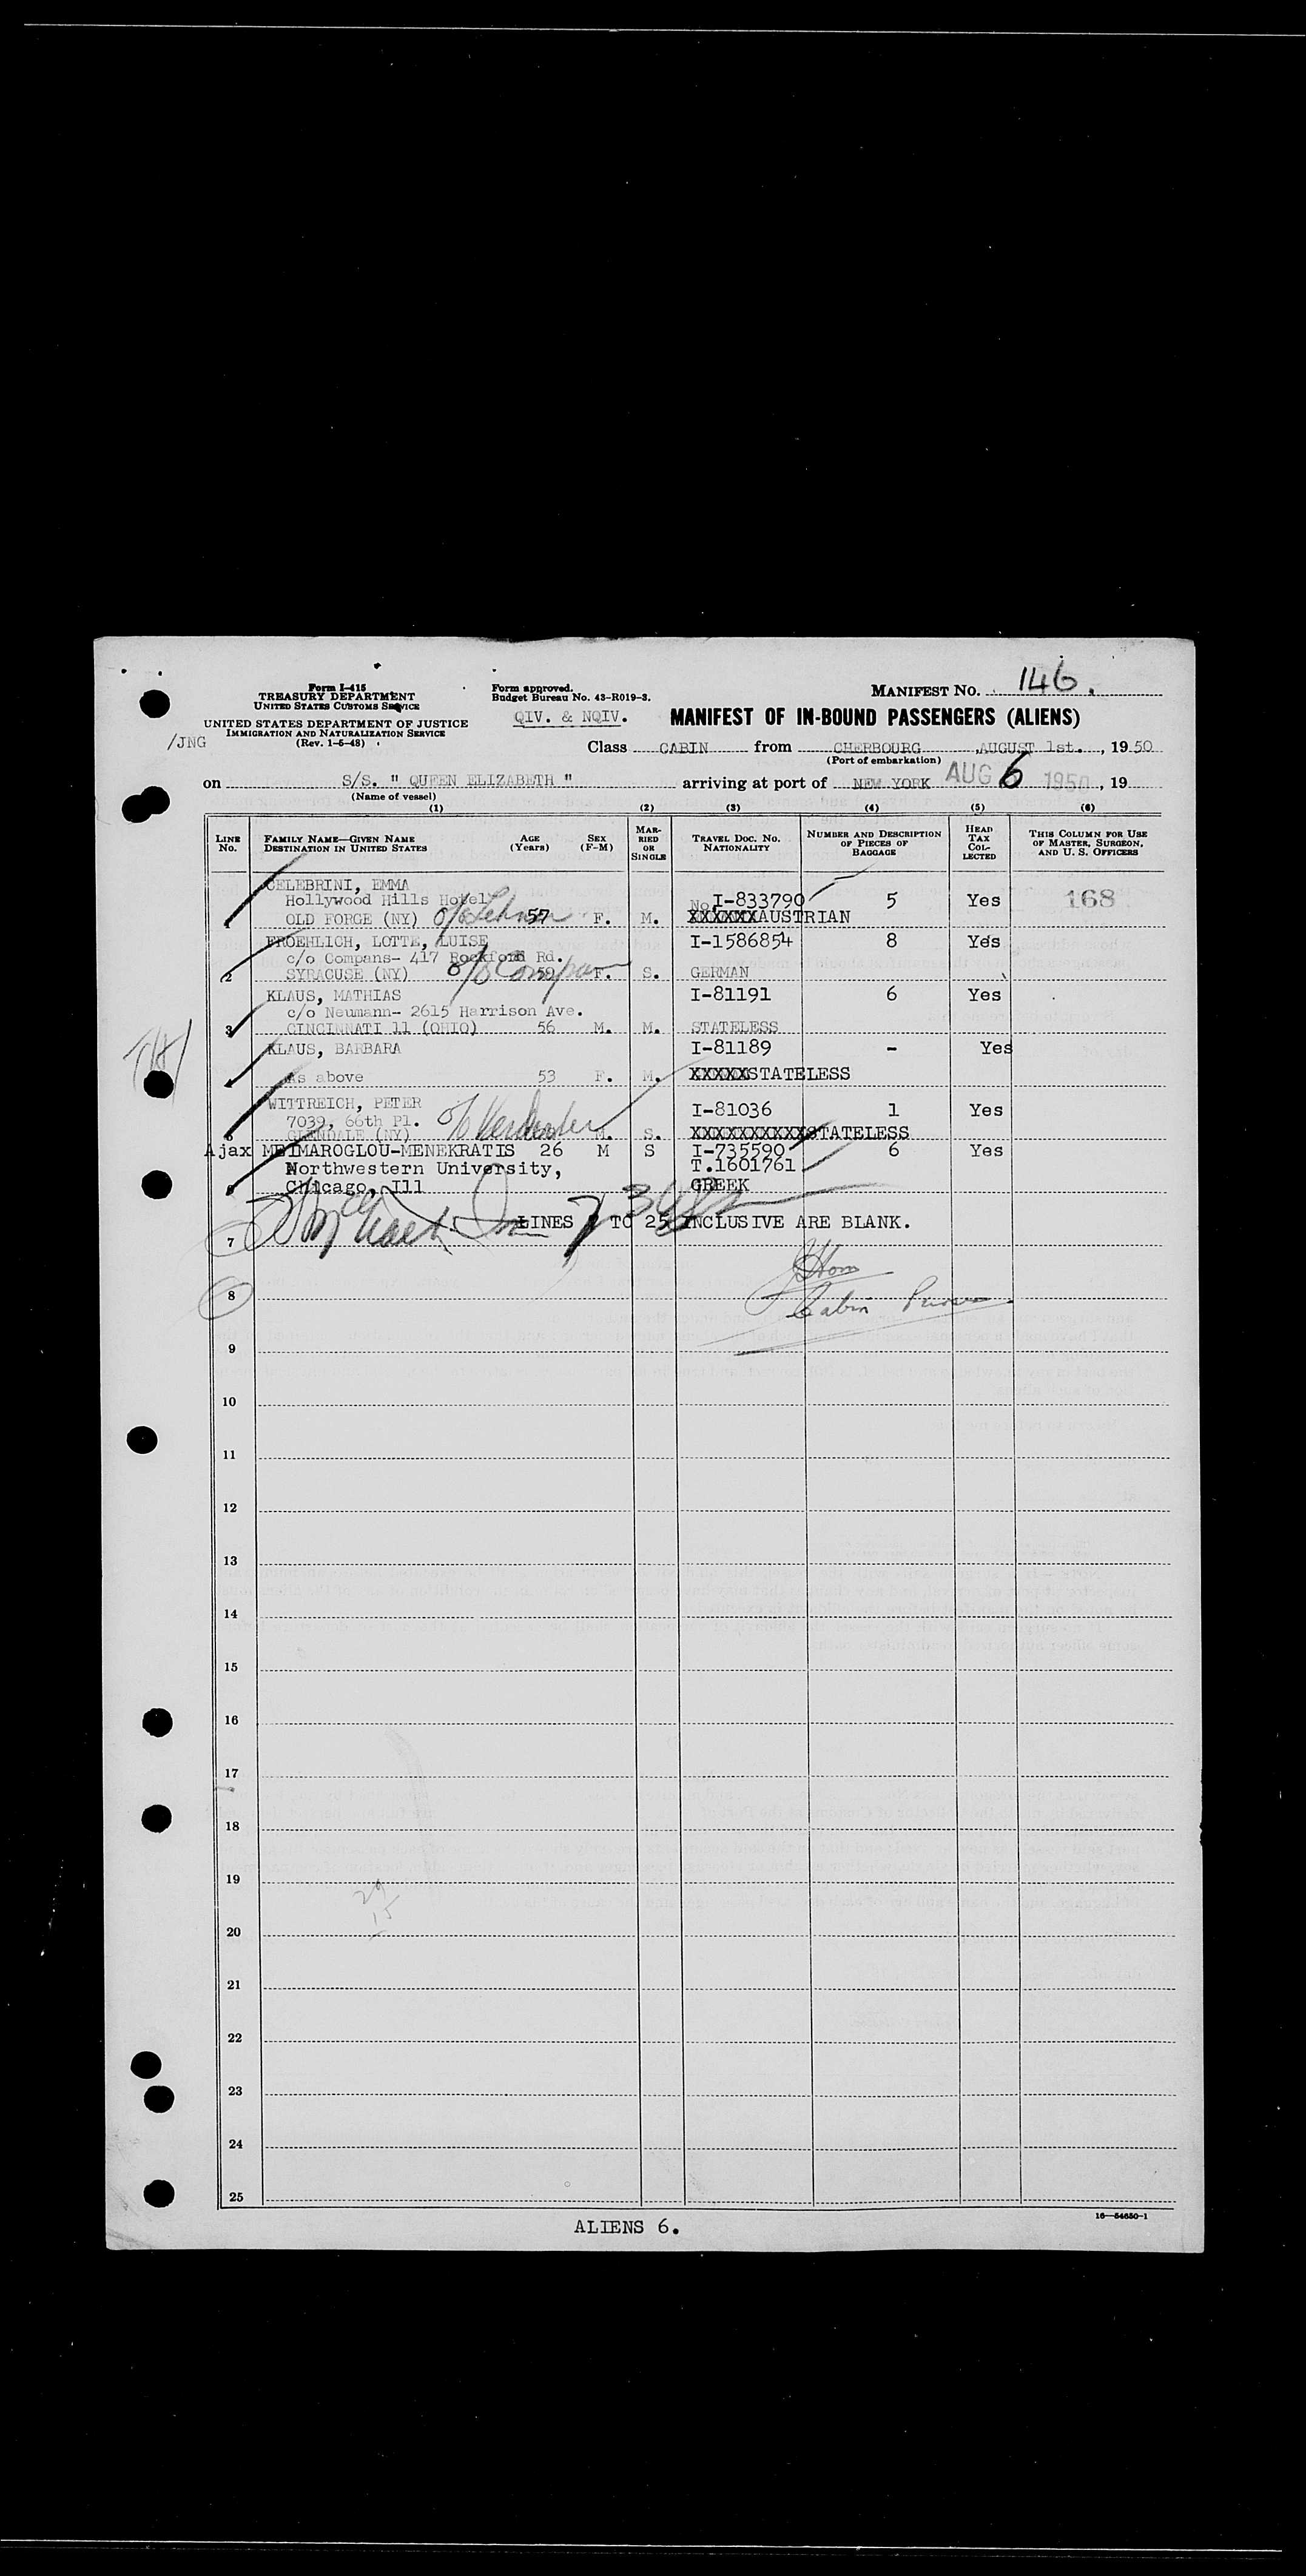 Form I-415
TREASURY DEPARTMENT
UNITED STATES CUSTOMS SERVICE
UNITED STATES DEPARTMENT OF JUSTICE
IMMIGRATION AND NATURALIZATION SERVICE
(Rev. 1-5-48)
/JNG
Form approved.
Budget Bureau No. 43-R019-3.
QIV. & NQIV.
MANIFEST NO. 146.
MANIFEST OF IN-BOUND PASSENGERS (ALIENS)
Class CABIN from CHERBOURG, AUGUST 1st., 1950
(Port of embarkation)
on S/S. " QUEEN ELIZABETH " arriving at port of NEW YORK AUG 6 1950, 19
(Name of vessel)
(1) (2) (3) (4) (5) (6)
LINE NO. FAMILY NAME—GIVEN NAME DESTINATION IN UNITED STATES AGE (Years) SEX (F-M) MARRIED OR SINGLE TRAVEL DOC. NO. NATIONALITY NUMBER AND DESCRIPTION OF PIECES OF BAGGAGE HEAD TAX COLLECTED THIS COLUMN FOR USE OF MASTER, SURGEON, AND U. S. OFFICERS
CELEBRINI, EMMA
Hollywood Hills Hotel No I-833790 5 Yes 168
1 OLD FORGE (NY) 57 F. M. XXXXXXAUSTRIAN
FROEHLICH, LOTTE, LUISE I-1586854 8 Yes
c/o Compans- 417 Rockford Rd.
2 SYRACUSE (NY) 59 F. S. GERMAN
KLAUS, MATHIAS I-81191 6 Yes
c/o Neumann- 2615 Harrison Ave.
3 CINCINNATI 11 (OHIO) 56 M. M. STATELESS
KLAUS, BARBARA I-81189 - Yes
As above 53 F. M. XXXXXSTATELESS
WITTREICH, PETER I-81036 1 Yes
7039, 66th Pl.
5 GLENDALE (NY) M. S. XXXXXXXXXXSTATELESS
Ajax MEIMAROGLOU-MENEKRATIS 26 M S I-735590 6 Yes
Northwestern University, T.1601761
6 Chicago, Ill GREEK
LINES 7 TO 25 INCLUSIVE ARE BLANK.
7
8
Cabin Purser
9
10
11
12
13
14
15
16
17
18
19
29
15
20
21
22
23
24
25
ALIENS 6.
16—54650-1